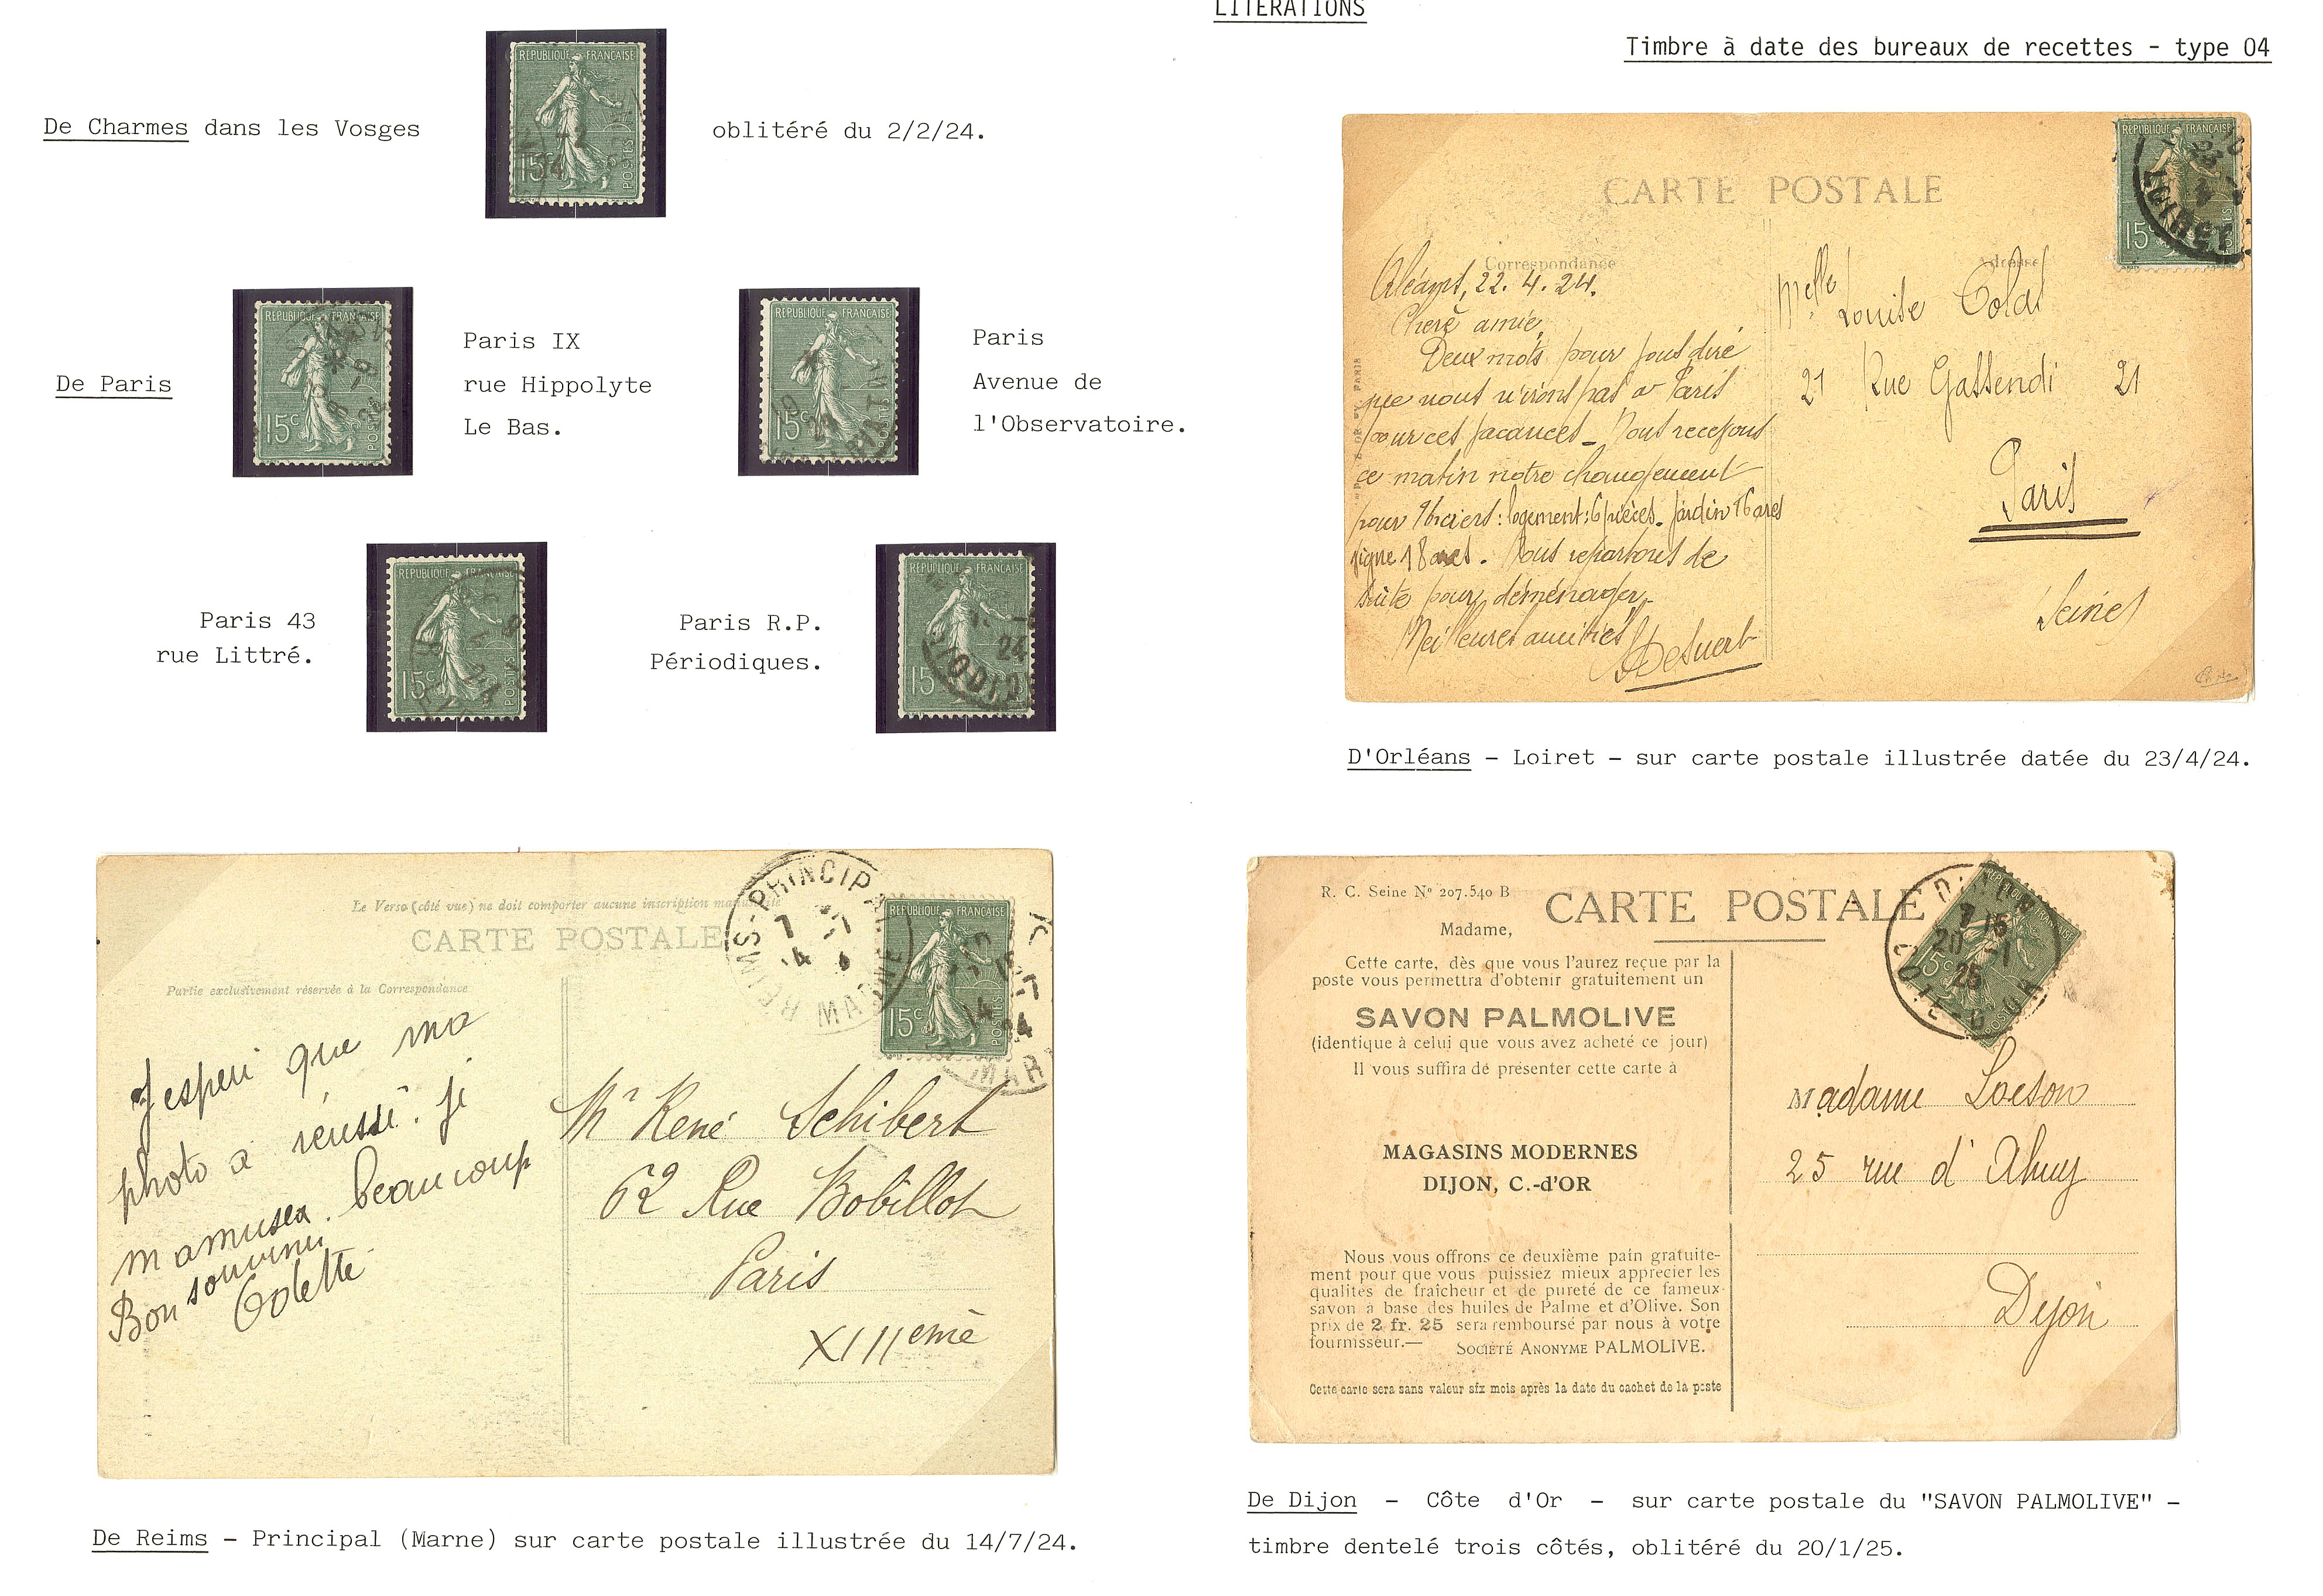 LITERATIONS
Timbre à date des bureaux de recettes - type 04
De Charmes dans les Vosges
REPUBLIQUE FRANÇAISE
15c
POSTES
oblitéré du 2/2/24.
De Paris
REPUBLIQUE FRANÇAISE
15c
POSTES
Paris IX
rue Hippolyte
Le Bas.
REPUBLIQUE FRANÇAISE
15c
POSTES
Paris
Avenue de
l'Observatoire.
Paris 43
rue Littré.
REPUBLIQUE FRANÇAISE
15c
POSTES
Paris R.P.
Périodiques.
REPUBLIQUE FRANÇAISE
15
24
CARTE POSTALE
REPUBLIQUE FRANÇAISE
15c
LOIRET
Correspondance
Adresse
Orléans, 22. 4. 24.
Chère amie,
Deux mots pour vous dire
que nous n'irons pas à Paris
pour ces vacances - Nous recevons
ce matin notre changement
pour : logement: 6 pièces. jardin 16 ares
vigne 18 ares. Nous repartons de
suite pour déménager.
Meilleures amitiés
Melle Louise Colas
21 Rue Gassendi 21
Paris
Seine
D'Orléans - Loiret - sur carte postale illustrée datée du 23/4/24.
Le Verso (côté vue) ne doit comporter aucune inscription manuscrite
CARTE POSTALE
Partie exclusivement réservée à la Correspondance
REIMS-PRINCIPAL
7 -7
MARNE
REPUBLIQUE FRANÇAISE
15c
POSTES
14
24
MAR
J'esperi que ma
photo a réussi. Je
m amuser. beaucoup
Bon souvenir
Odette
Mr René Schibert
62 Rue Bobillot
Paris
XIIIeme
De Reims - Principal (Marne) sur carte postale illustrée du 14/7/24.
R. C. Seine No 207.540 B
CARTE POSTALE
DIJON
7 15
20 -1
25
COTE-D'OR
15c
POSTES
Madame,
Cette carte, dès que vous l'aurez reçue par la
poste vous permettra d'obtenir gratuitement un
SAVON PALMOLIVE
(identique à celui que vous avez acheté ce jour)
Il vous suffira de présenter cette carte à
MAGASINS MODERNES
DIJON, C.-d'OR
Nous vous offrons ce deuxième pain gratuite-
ment pour que vous puissiez mieux apprécier les
qualités de fraîcheur et de pureté de ce fameux
savon à base des huiles de Palme et d'Olive. Son
prix de 2 fr. 25 sera remboursé par nous à votre
fournisseur.—
SOCIÉTÉ ANONYME PALMOLIVE.
Cette carte sera sans valeur six mois après la date du cachet de la poste
Madame Loeson
25 rue d'Ahuy
Dijon
De Dijon - Côte d'Or - sur carte postale du "SAVON PALMOLIVE" -
timbre dentelé trois côtés, oblitéré du 20/1/25.